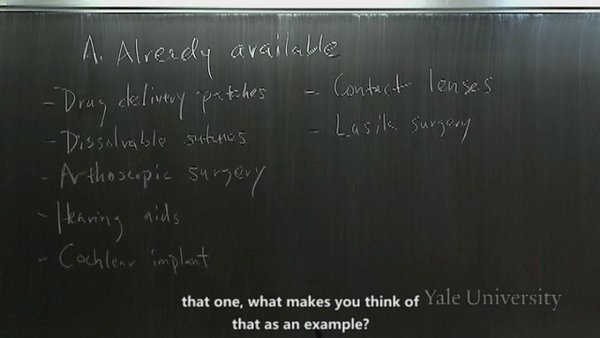 A. Already available
- Drug delivery patches
- Dissolvable sutures
- Arthoscopic surgery
- Hearing aids
- Cochlear implant
- Contact lenses
- Lasik surgery
that one, what makes you think of
that as an example?
Yale University